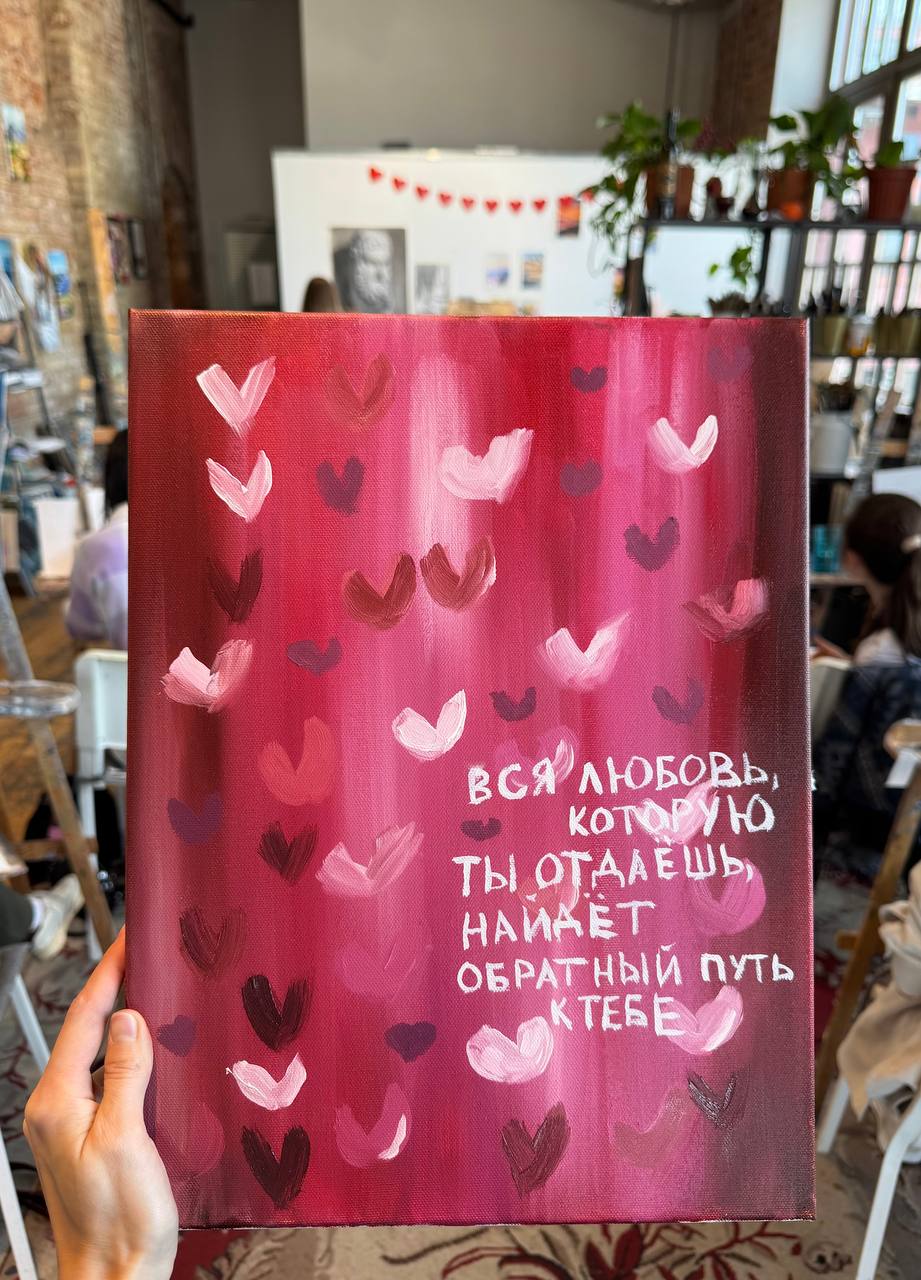 ВСЯ ЛЮБОВЬ,
КОТОРУЮ
ТЫ ОТДАЁШЬ,
НАЙДЁТ
ОБРАТНЫЙ ПУТЬ
К ТЕБЕ